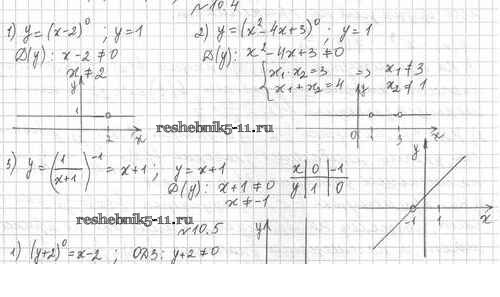 №10.4
1) y=(x-2)⁰ ; y=1
2) y=(x²-4x+3)⁰ ; y=1
D(y): x-2≠0
x≠2
D(y): x²-4x+3≠0
{ x₁·x₂=3
x₁+x₂=4
=> x₁≠3
x₂≠1
y
1
2
x
y
0
1
3
x
reshebnik5-11.ru
3) y=(1/(x+1))⁻¹=x+1 ; y=x+1
D(y): x+1≠0
x≠-1
x | 0 | -1
y | 1 | 0
y
-1
1
x
reshebnik5-11.ru
№10.5
1) (y+2)⁰=x-2 ; ОДЗ: y+2≠0
y